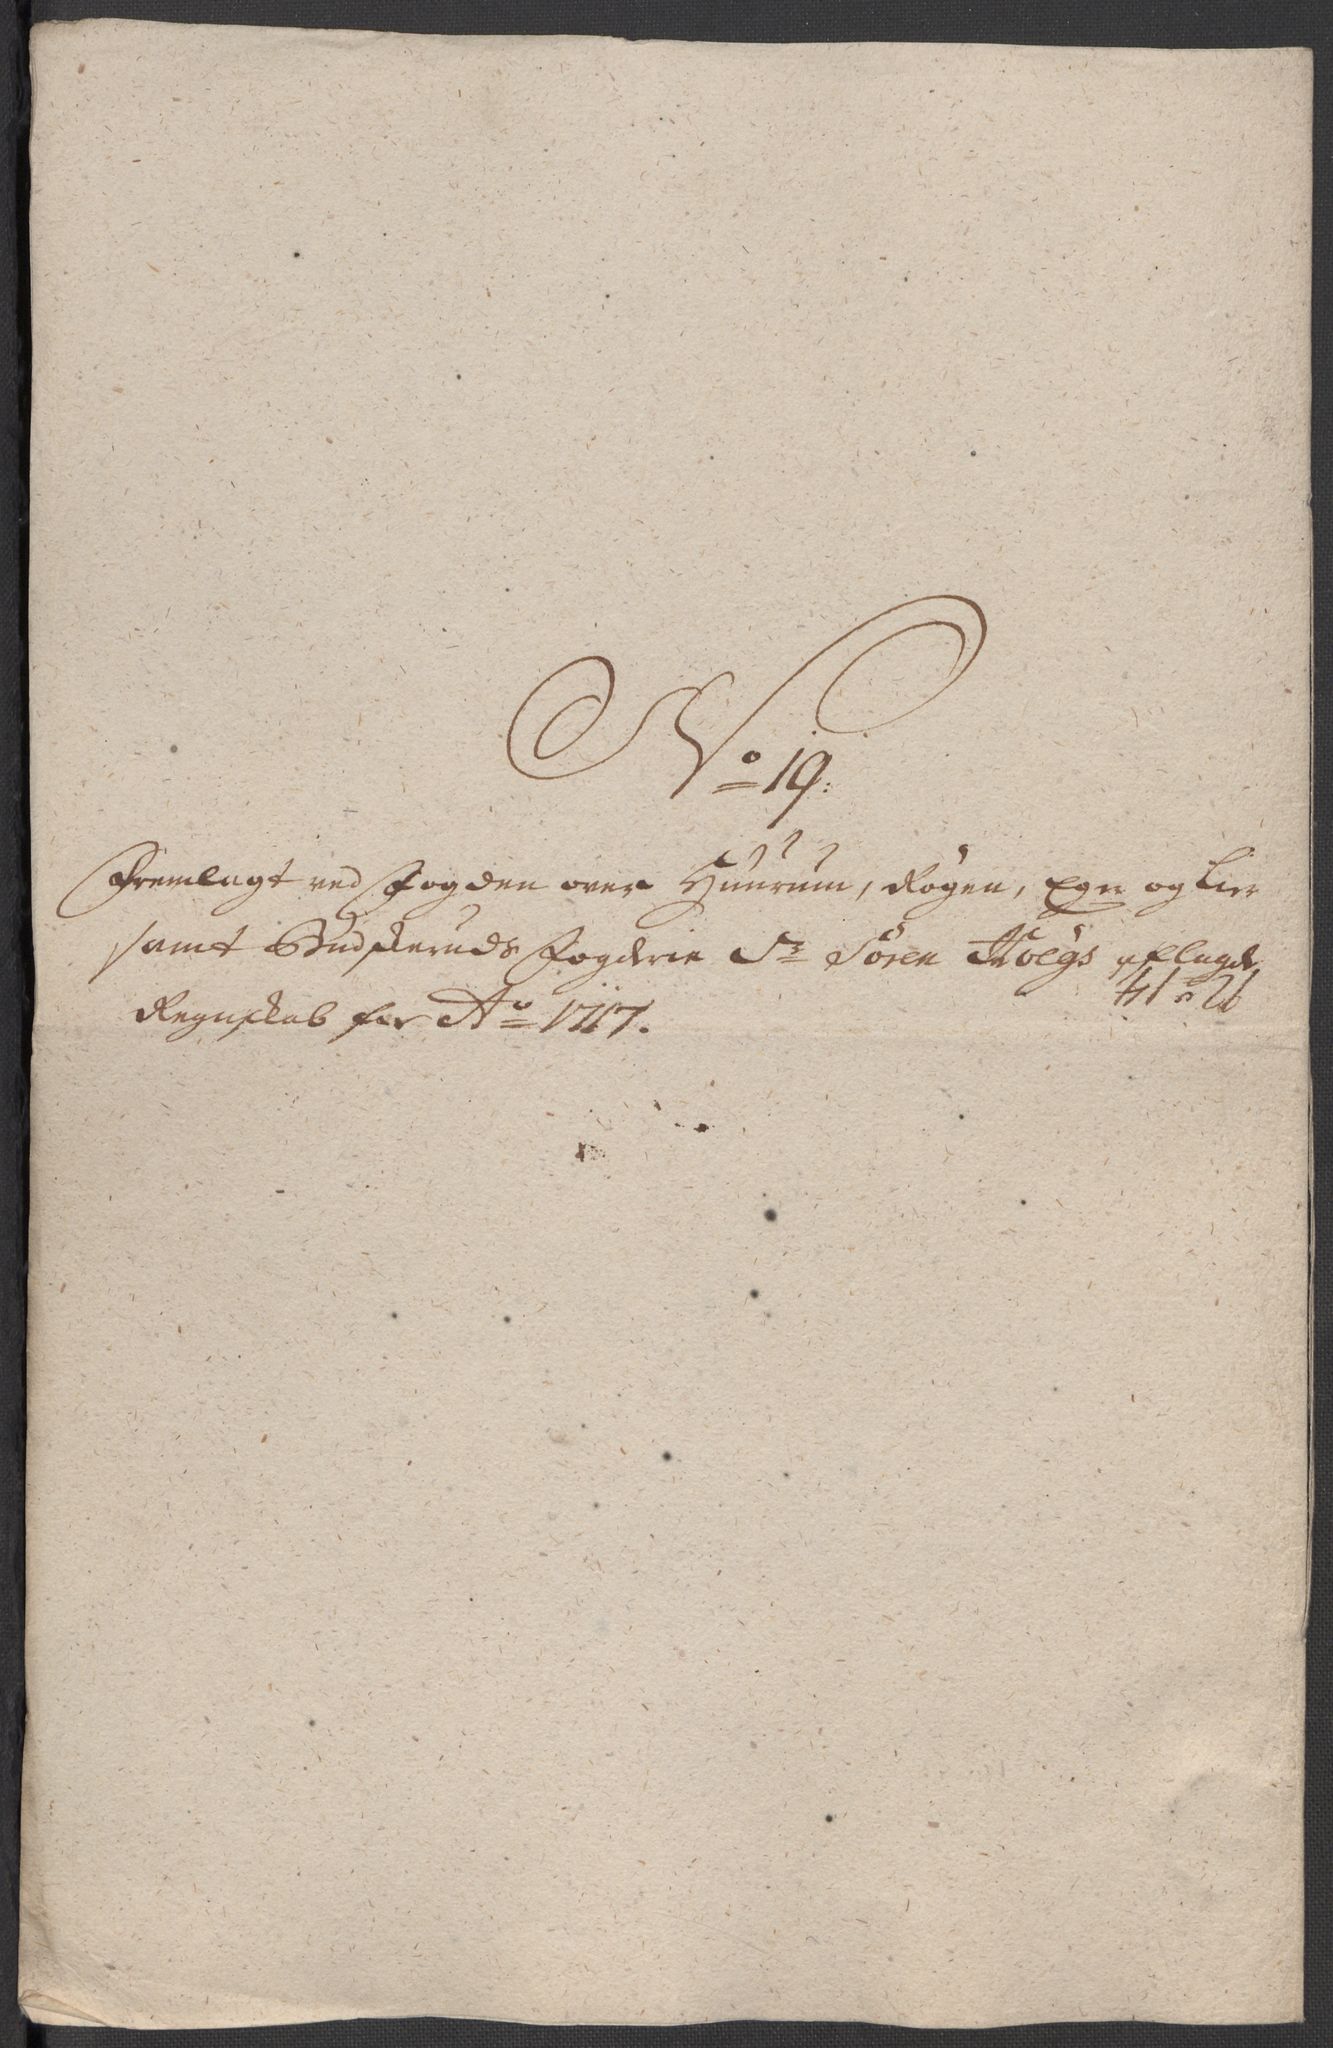 No 19.
Fremlagt ved Fogden over Huurum, Røgen, Eger og Lier
samt Budskeruds Fogderie Sr Søren Hoegs aflagde
Regnskab for Ao 1717.